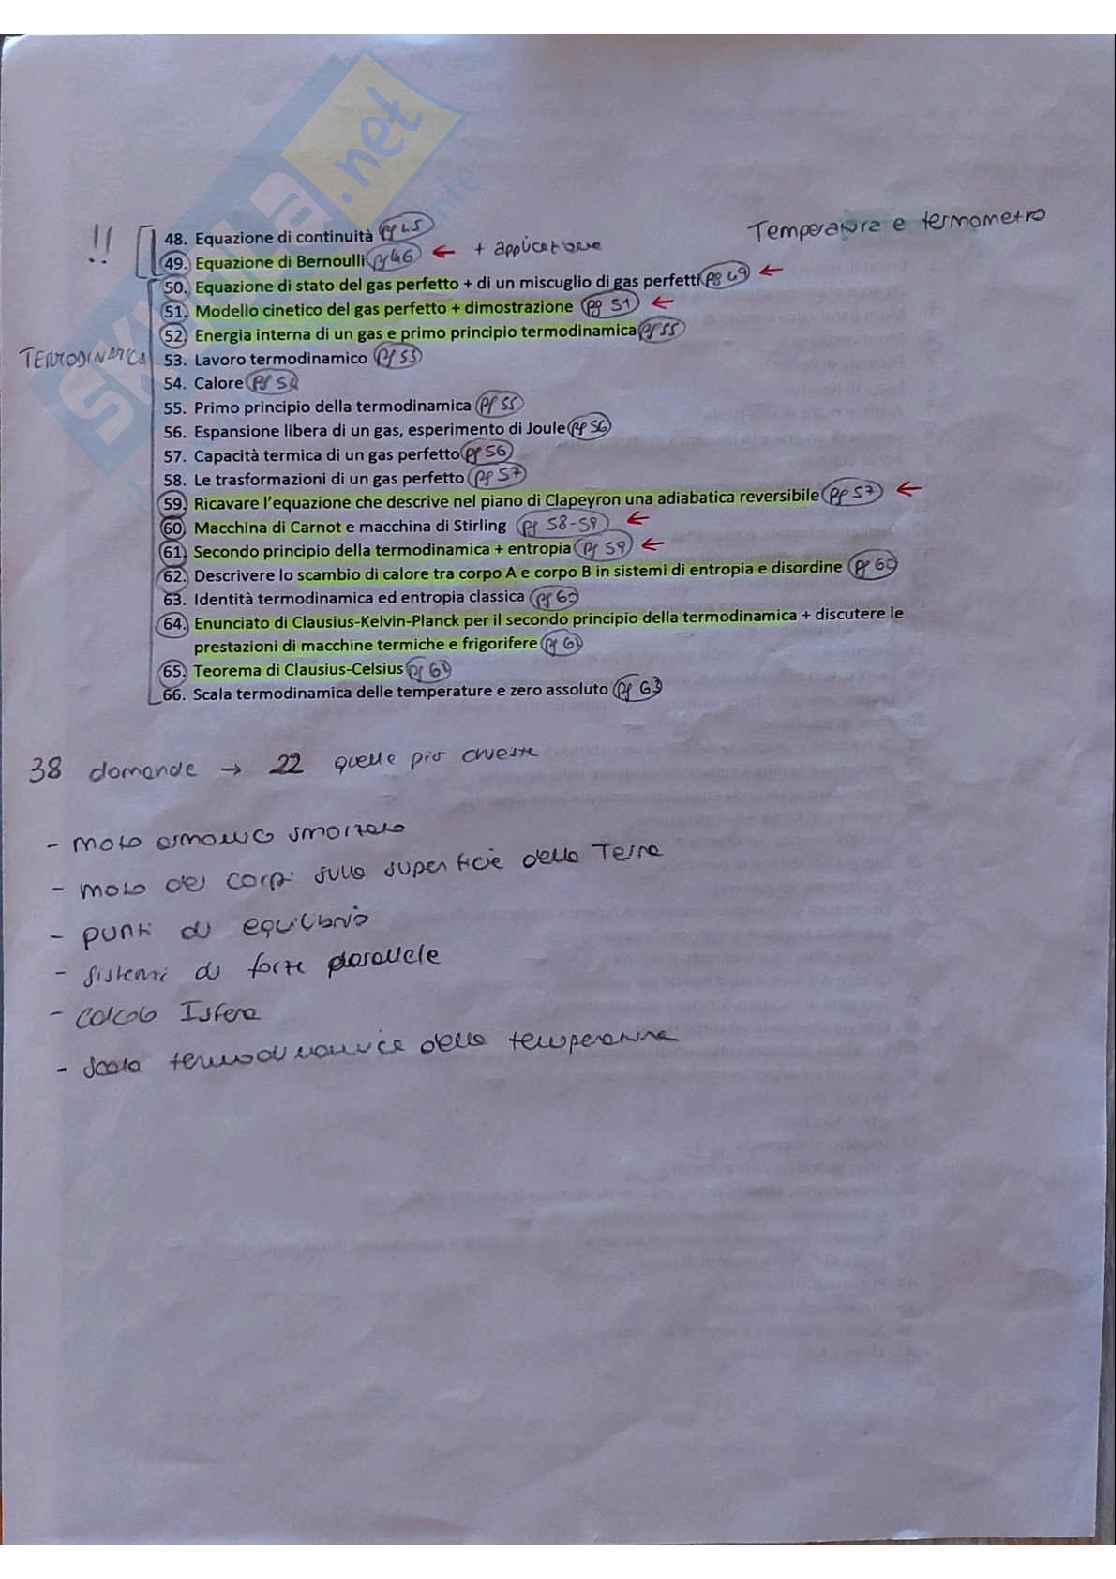 Skuola.net
Temperatura e termometro
!! 48. Equazione di continuità pg 45
49. Equazione di Bernoulli pg 46 ← + applicazione
50. Equazione di stato del gas perfetto + di un miscuglio di gas perfetti pg 49 ←
51. Modello cinetico del gas perfetto + dimostrazione pg 51 ←
52. Energia interna di un gas e primo principio termodinamica pg 55
TERMODINAMICA 53. Lavoro termodinamico pg 55
54. Calore pg 52
55. Primo principio della termodinamica pg 55
56. Espansione libera di un gas, esperimento di Joule pg 56
57. Capacità termica di un gas perfetto pg 56
58. Le trasformazioni di un gas perfetto pg 57
59. Ricavare l'equazione che descrive nel piano di Clapeyron una adiabatica reversibile pg 57 ←
60. Macchina di Carnot e macchina di Stirling pg 58-59 ←
61. Secondo principio della termodinamica + entropia pg 59 ←
62. Descrivere lo scambio di calore tra corpo A e corpo B in sistemi di entropia e disordine pg 60
63. Identità termodinamica ed entropia classica pg 60
64. Enunciato di Clausius-Kelvin-Planck per il secondo principio della termodinamica + discutere le
prestazioni di macchine termiche e frigorifere pg 61
65. Teorema di Clausius-Celsius pg 61
66. Scala termodinamica delle temperature e zero assoluto pg 63
38 domande → 22 quelle più chieste
- moto armonico smorzato
- moto dei corpi sulla superficie della Terra
- punti di equilibrio
- sistemi di forze parallele
- calcolo Isfera
- scala termodinamica della temperatura